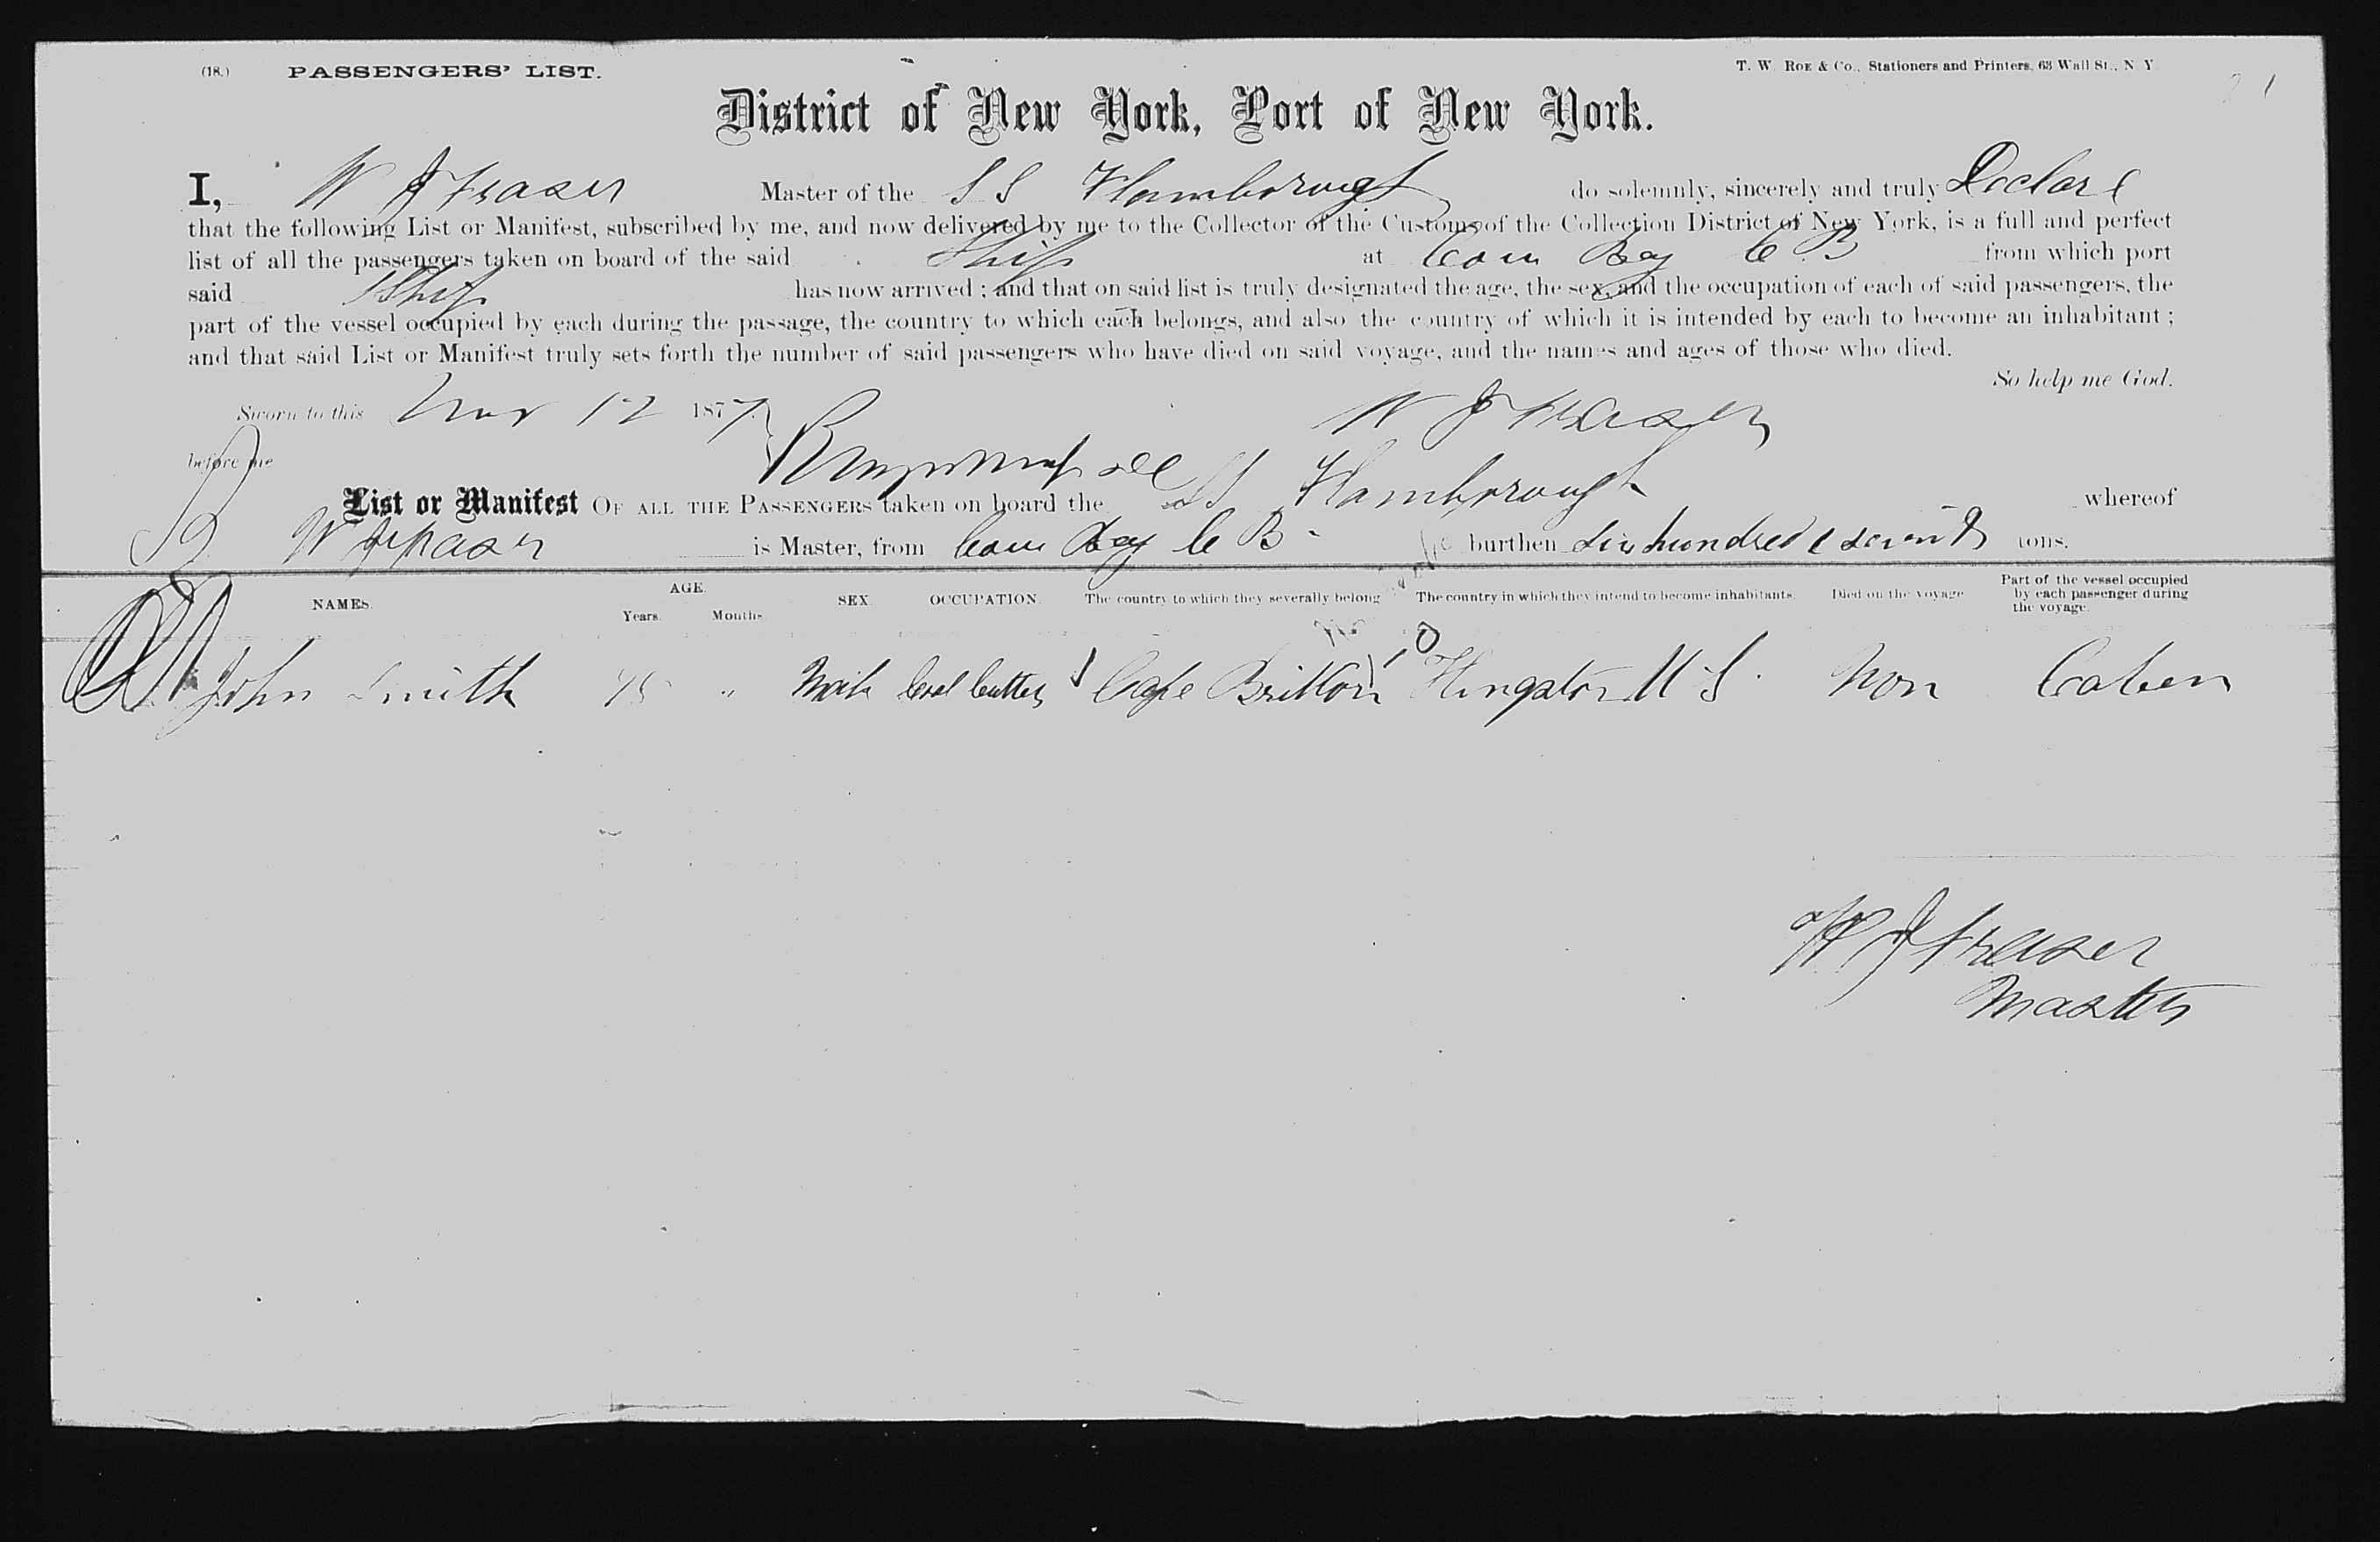 (18.) PASSENGERS' LIST. T. W. ROE & Co., Stationers and Printers, 63 Wall St., N. Y
District of New York, Port of New York.
I, W J Fraser Master of the SS Flamborough do solemnly, sincerely and truly Declare
that the following List or Manifest, subscribed by me, and now delivered by me to the Collector of the Customs of the Collection District of New York, is a full and perfect
list of all the passengers taken on board of the said Ship at Cow Bay C B from which port
said Ship has now arrived; and that on said list is truly designated the age, the sex, and the occupation of each of said passengers, the
part of the vessel occupied by each during the passage, the country to which each belongs, and also the country of which it is intended by each to become an inhabitant;
and that said List or Manifest truly sets forth the number of said passengers who have died on said voyage, and the names and ages of those who died.
So help me God.
Sworn to this Nov 12 1877 W J Fraser
before me
List or Manifest OF ALL THE PASSENGERS taken on board the SS Flamborough whereof
W J Fraser is Master, from Cow Bay C B burthen Six hundred & seventy tons.
NAMES. AGE. Years. Months. SEX. OCCUPATION. The country to which they severally belong The country in which they intend to become inhabitants. Died on the voyage Part of the vessel occupied by each passenger during the voyage.
John Smith 45 " Male Coal Cutter Cape Britton Kingston U S. Non Caben
W J Fraser
Master